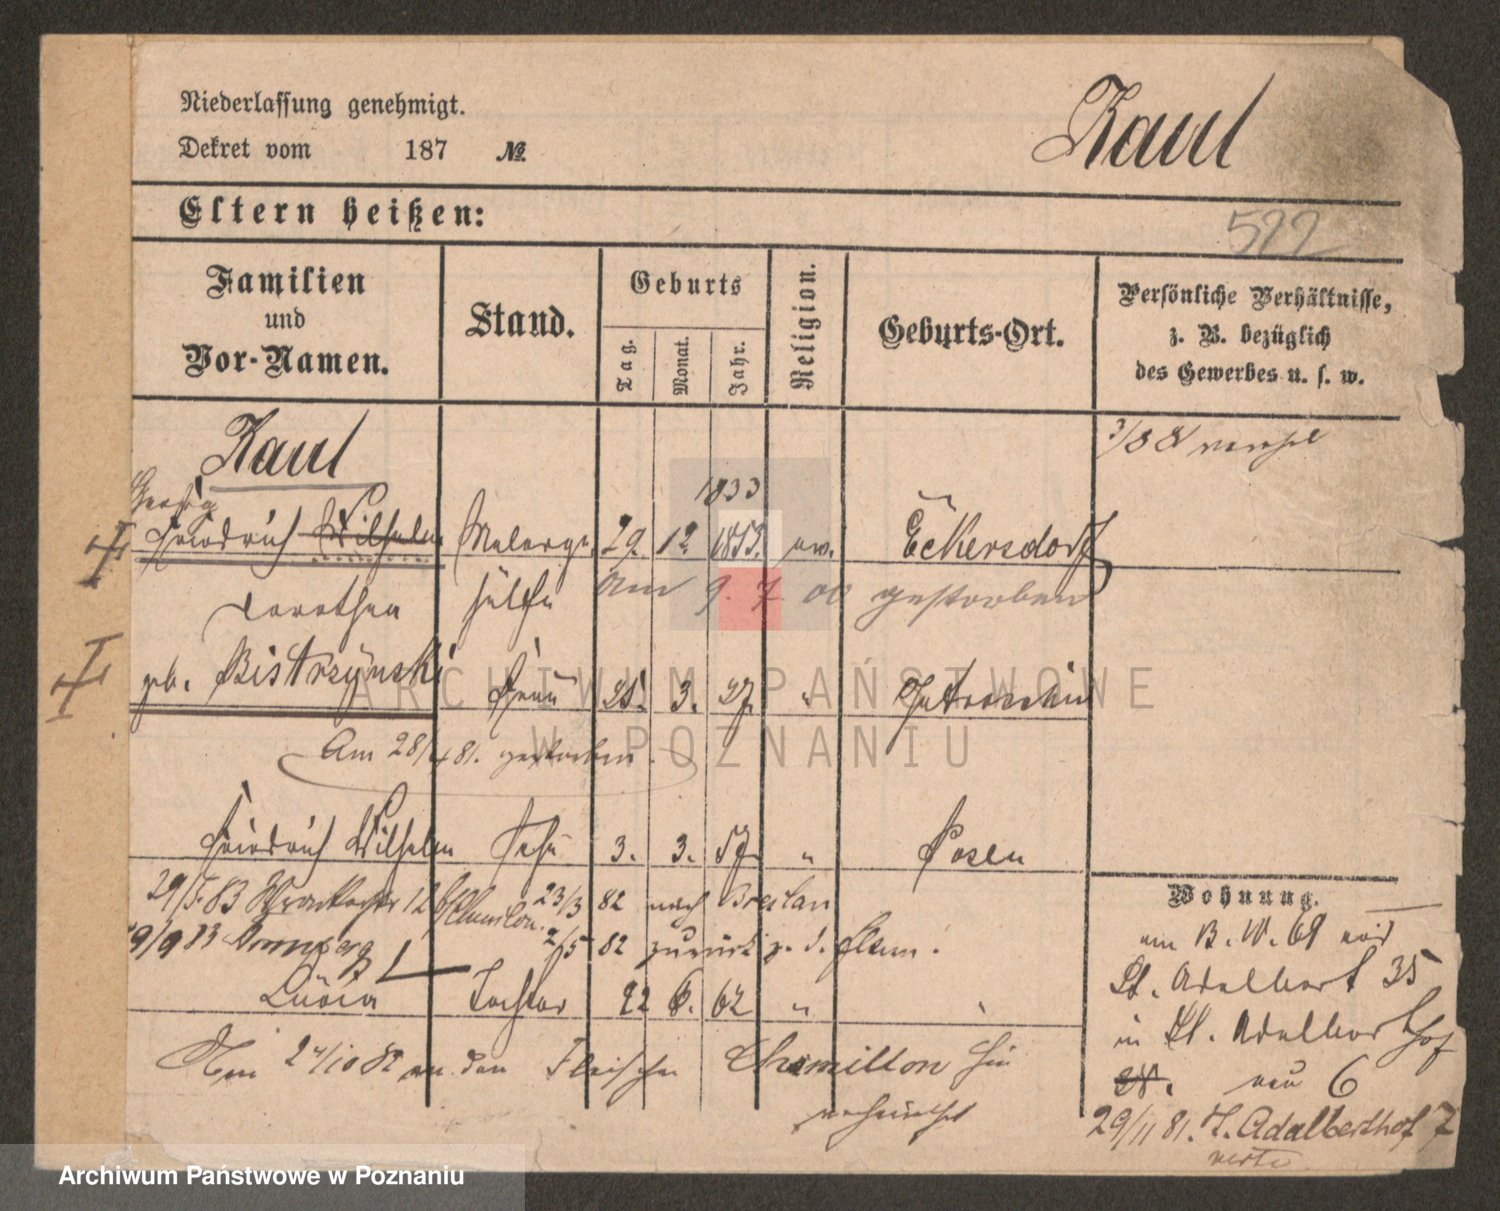 Niederlassung genehmigt.
Dekret vom 187 №
Kaul
Eltern heißen:
522
Familien
und
Vor-Namen.
Stand.
Geburts
Tag.
Monat.
Jahr.
Religion.
Geburts-Ort.
Persönliche Verhältnisse,
z. B. bezüglich
des Gewerbes u. s. w.
Kaul
Georg
1833
Friedrich Wilhelm Malerge 29. 12. 1833. ev. Eckersdorf
Dorothea hülfe am 9. 7. 00 gestorben
geb. Bistrzynski Frau 3. 27. "
Am 28/4 81. gestorben.
Friedrich Wilhelm Sohn 3. 3. 57 " Posen
29/5. 83 12 23/3 82 nach Breslau
19/9 83 2/5 82 zurück z. d. Eltern.
Lucia Tochter 22 6. 62 " "
Am 24/10 82 an den Fleischer
verheirathet
Wohnung.
am B. W. 69
St. Adalbert 35
in St. Adalbert
neu 6
29/11 81. St. Adalberthof 7
verte
ARCHIWUM PAŃSTWOWE
W POZNANIU
Archiwum Państwowe w Poznaniu